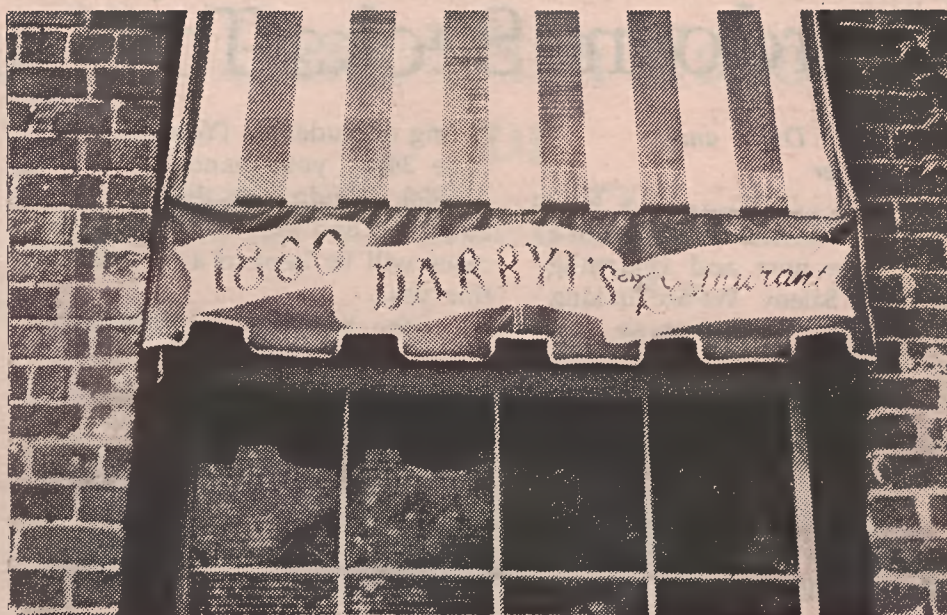 1860 DARRYL'S Restaurant